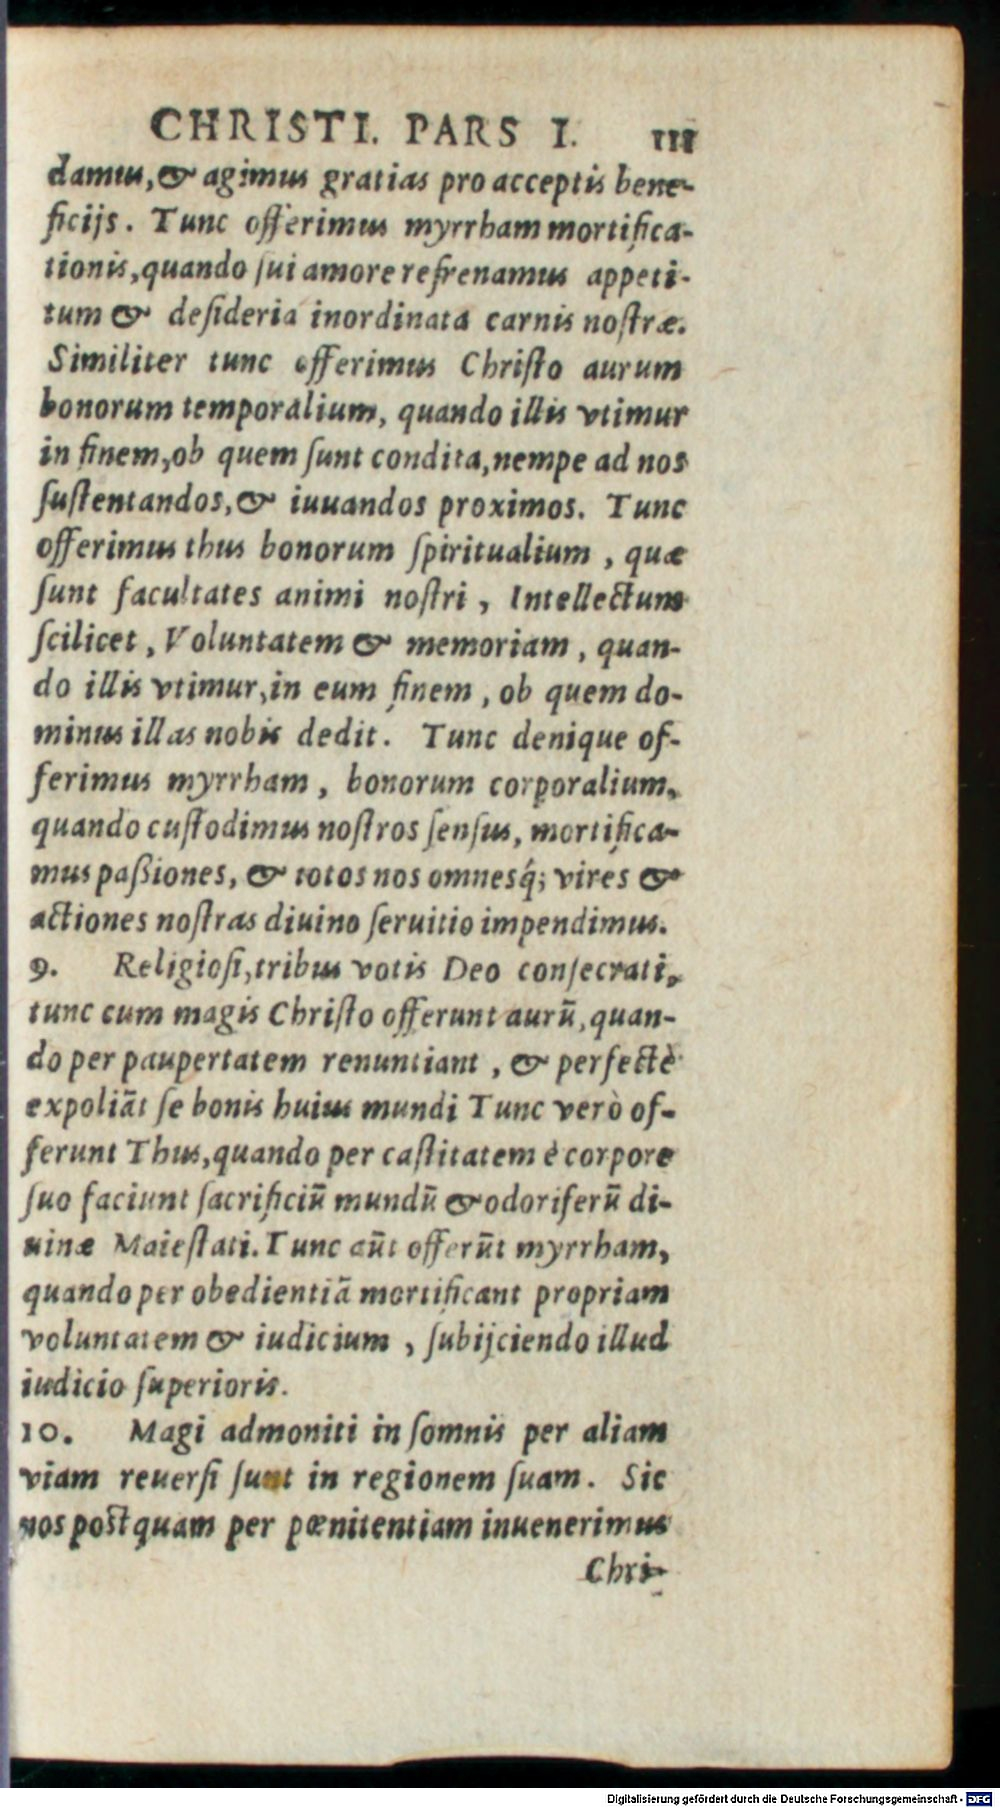 CHRISTI. PARS I. 111
damus, & agimus gratias pro acceptis bene-
ficijs. Tunc offerimus myrrham mortifica-
tionis, quando sui amore refrenamus appeti-
tum & desideria inordinata carnis nostræ.
Similiter tunc offerimus Christo aurum
bonorum temporalium, quando illis vtimur
in finem, ob quem sunt condita, nempe ad nos
sustentandos, & iuuandos proximos. Tunc
offerimus thus bonorum spiritualium, quæ
sunt facultates animi nostri, Intellectum
scilicet, Voluntatem & memoriam, quan-
do illis vtimur, in eum finem, ob quem do-
minus illas nobis dedit. Tunc denique of-
ferimus myrrham, bonorum corporalium,
quando custodimus nostros sensus, mortifica-
mus paßiones, & totos nos omnesq́; vires &
actiones nostras diuino seruitio impendimus.
9. Religiosi, tribus votis Deo consecrati,
tunc cum magis Christo offerunt aurũ, quan-
do per paupertatem renuntiant, & perfectè
expoliãt se bonis huius mundi Tunc verò of-
ferunt Thus, quando per castitatem è corpore
suo faciunt sacrificiũ mundũ & odoriferũ di-
uinæ Maiestati. Tunc aũt offerũt myrrham,
quando per obedientiã mortificant propriam
voluntatem & iudicium, subijciendo illud
iudicio superioris.
10. Magi admoniti in somnis per aliam
viam reuersi sunt in regionem suam. Sic
nos postquam per pœnitentiam inuenerimus
Chri-
Digitalisierung gefördert durch die Deutsche Forschungsgemeinschaft - DFG